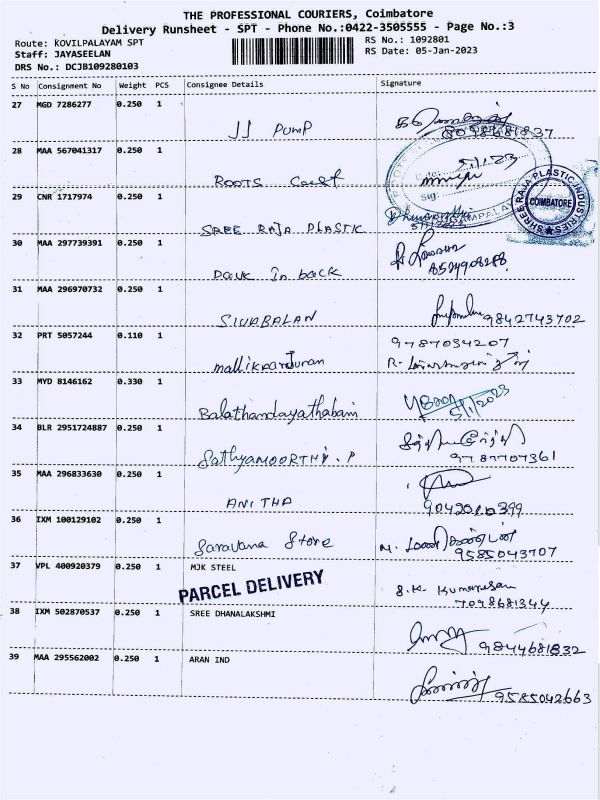 THE PROFESSIONAL COURIERS, Coimbatore
Delivery Runsheet - SPT - Phone No.:0422-3505555 - Page No.:3
Route: KOVILPALAYAM SPT
Staff: JAYASEELAN
DRS No.: DCJB109280103
RS No.: 1092801
RS Date: 05-Jan-2023
S No Consignment No Weight PCS Consignee Details Signature
27 MGD 7286277 0.250 1
JJ PUMP
8098681837
28 MAA 567041317 0.250 1
ROOTS Cast
5/1/23
Sig:
29 CNR 1717974 0.250 1
SREE RAJA PLASTIC
SHREE RAJA PLASTIC INDUSTRIES
COIMBATORE
30 MAA 297739391 0.250 1
Pack In back
8524908288
31 MAA 296970732 0.250 1
SIVABALAN
9842743702
32 PRT 5057244 0.110 1
9787034207
mallikkarjunan
33 MYD 8146162 0.330 1
Balathandayathabani
5/1/2023
34 BLR 2951724887 0.250 1
Sathyamoorthi . P
9787707361
35 MAA 296833630 0.250 1
ANITHA
36 IXM 100129102 0.250 1
Saravana Store
9585043707
37 VPL 400920379 0.250 1 MJK STEEL
PARCEL DELIVERY
S.K. Kumaresan
7098681344
38 IXM 502870537 0.250 1 SREE DHANALAKSHMI
9844681832
39 MAA 295562002 0.250 1 ARAN IND
9585042663